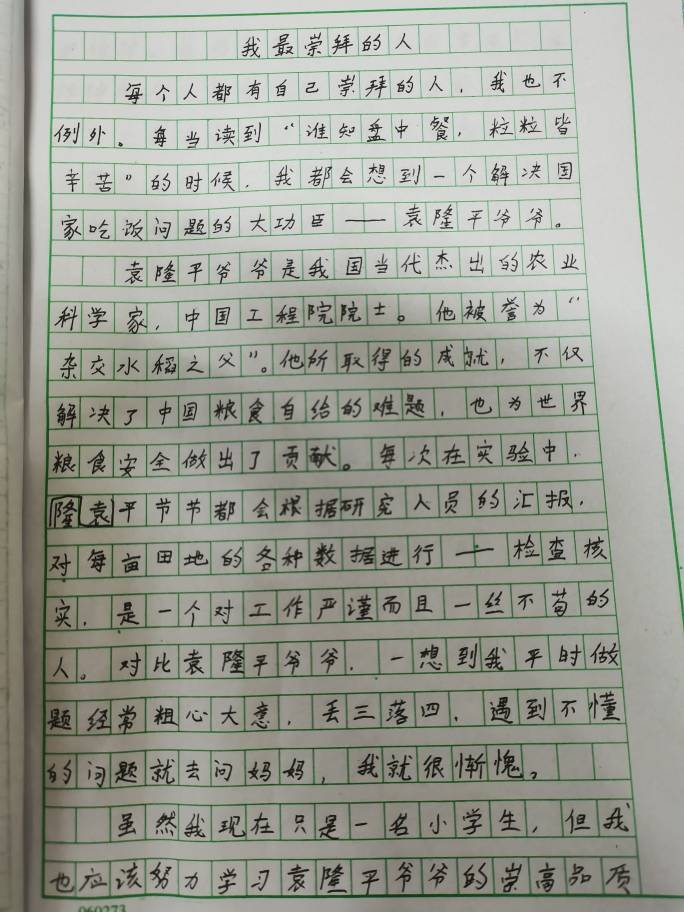 我最崇拜的人
每个人都有自己崇拜的人，我也不
例外。每当读到“谁知盘中餐，粒粒皆
辛苦”的时候，我都会想到一个解决国
家吃饭问题的大功臣——袁隆平爷爷。
袁隆平爷爷是我国当代杰出的农业
科学家，中国工程院院士。他被誉为“
杂交水稻之父”。他所取得的成就，不仅
解决了中国粮食自给的难题，也为世界
粮食安全做出了贡献。每次在实验中，
隆袁平节节都会根据研究人员的汇报，
对每亩田地的各种数据进行一一检查核
实，是一个对工作严谨而且一丝不苟的
人。对比袁隆平爷爷，一想到我平时做
题经常粗心大意，丢三落四，遇到不懂
的问题就去问妈妈，我就很惭愧。
虽然我现在只是一名小学生，但我
也应该努力学习袁隆平爷爷的崇高品质